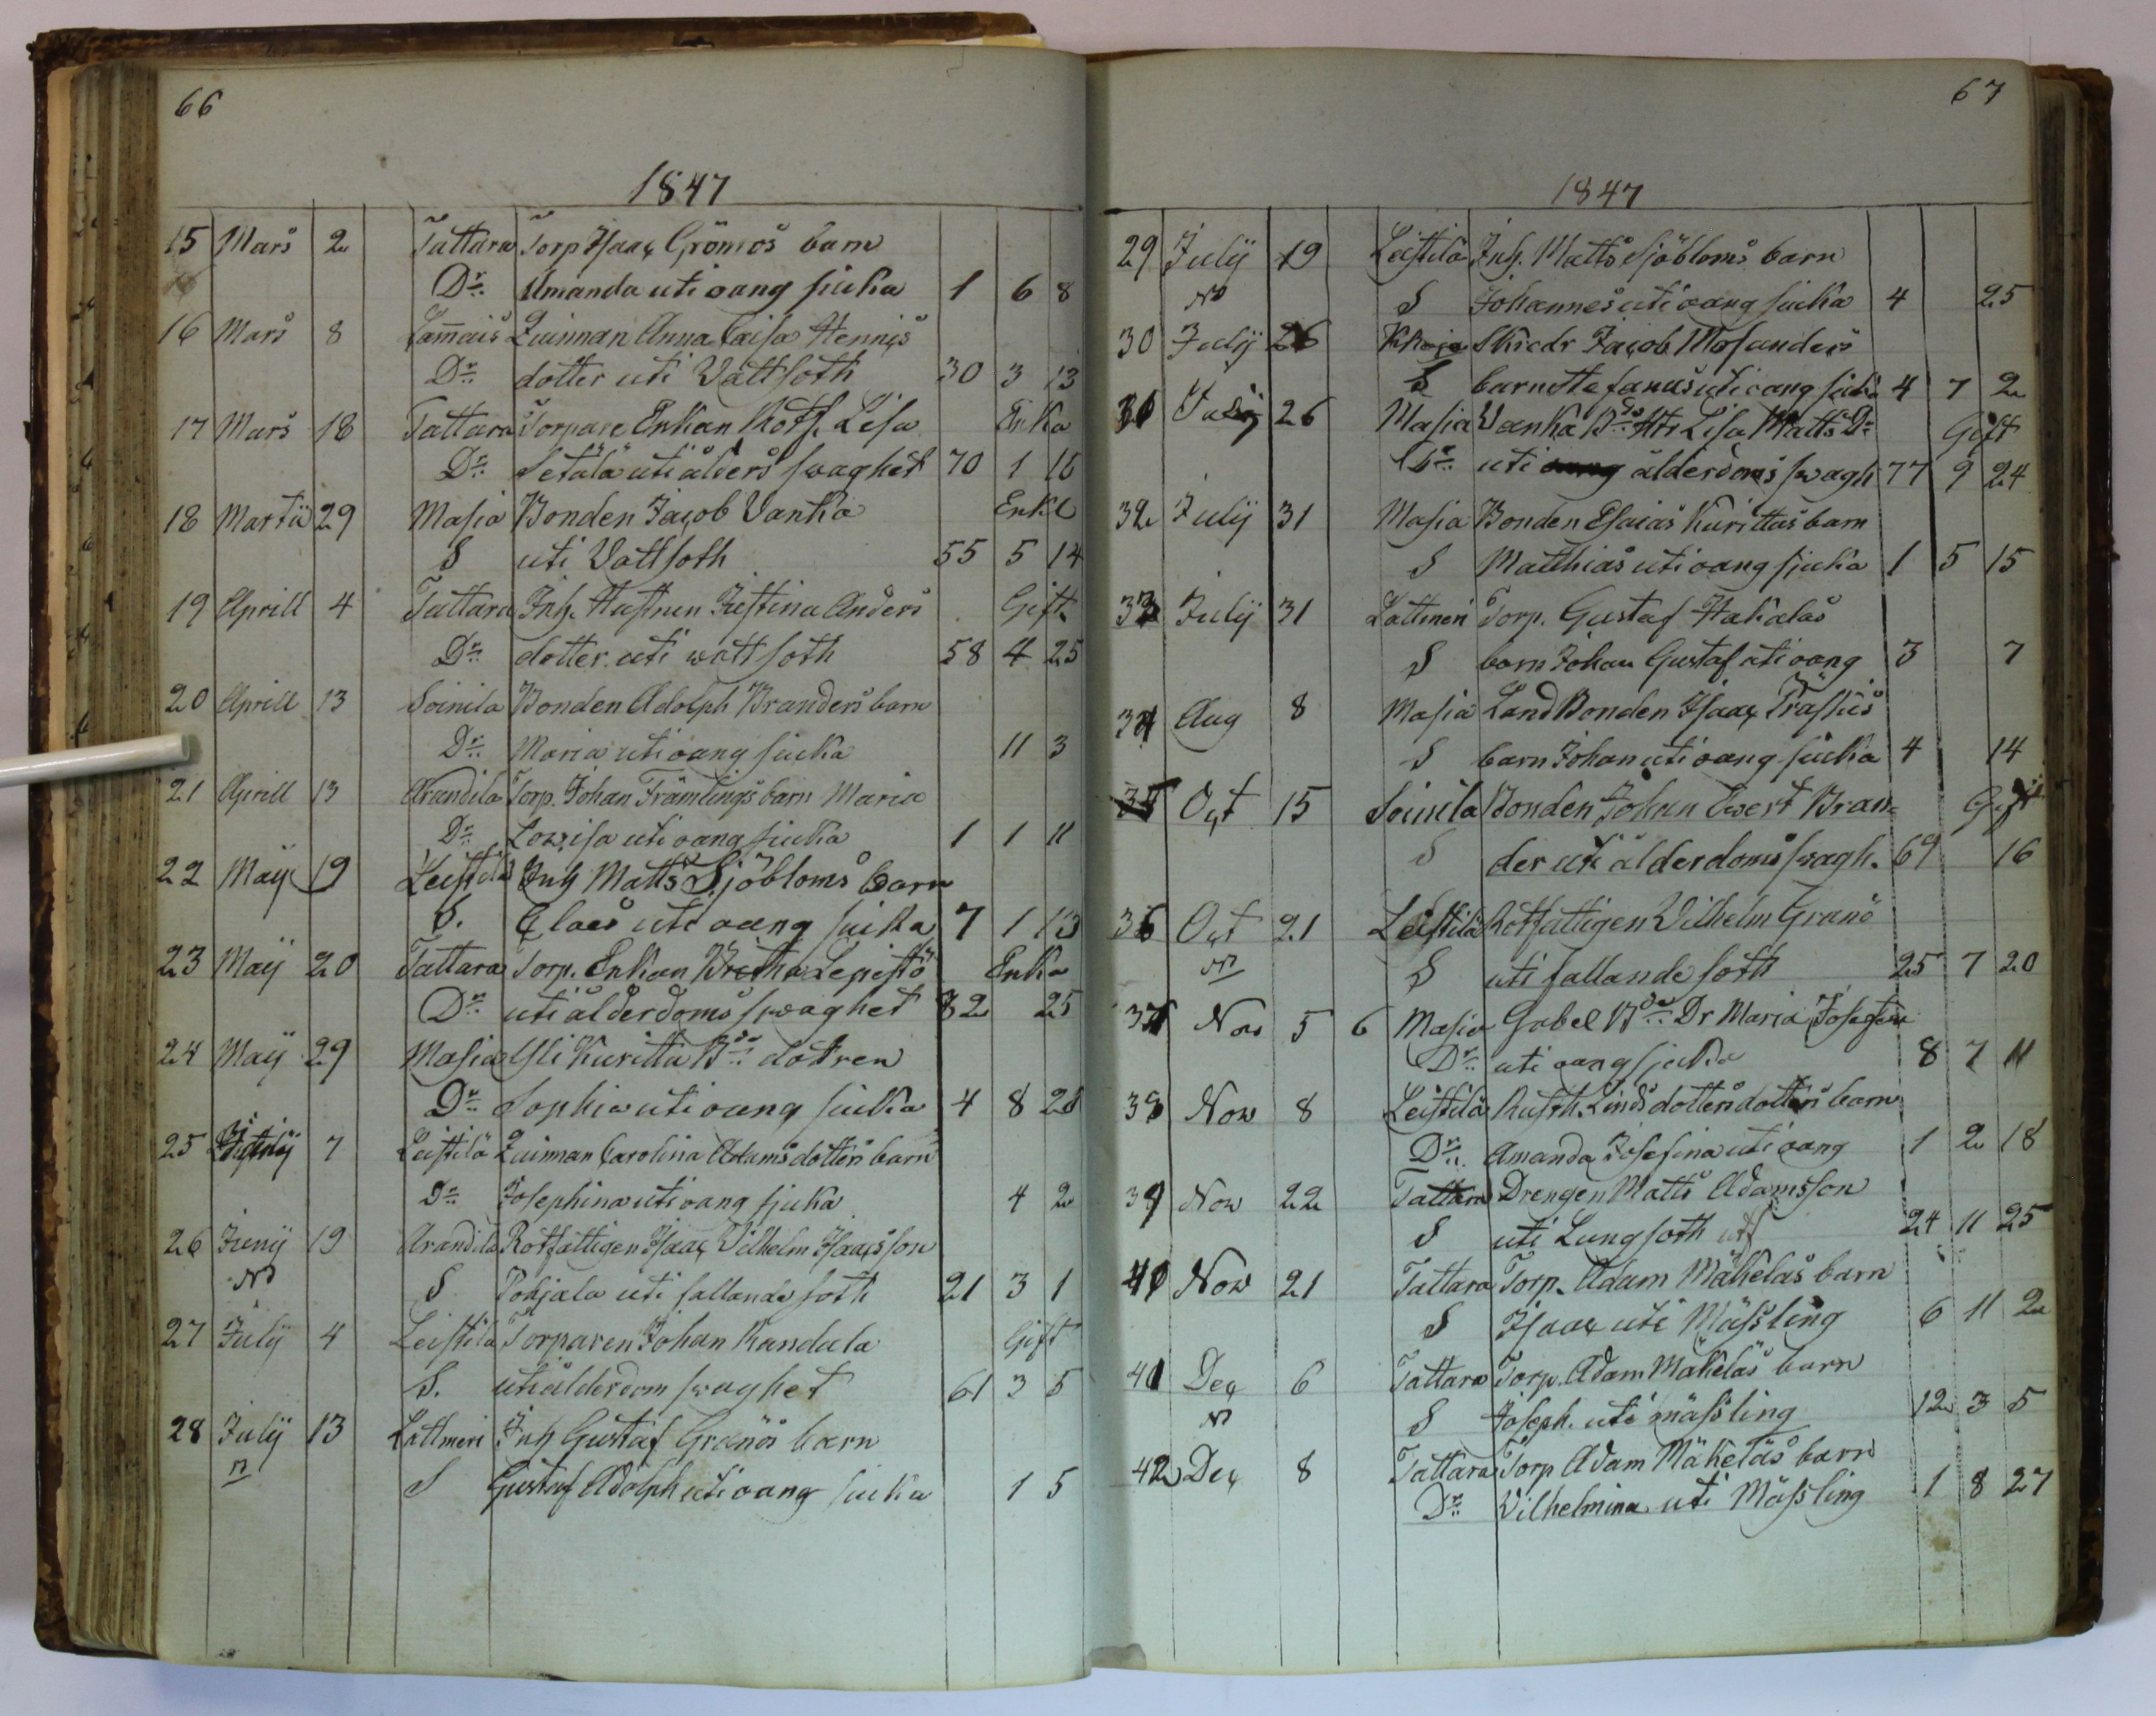 66
1847
15 Mars 2 Tattara Torp Isaac Grönros barn
Dr. Amanda uti oang siuka 1 6 8
16 Mars 8 Lam̅ais Quinnan Anna Caisa Hennis
Dr. dotter uti Vattsoth 30 3 13
17 Mars 18 Tattara Torpare Enkan Rotf. Lisa Enka
Dr. Setälä uti ålders swaghet 70 1 16
18 Martii 29 Masia Bonden Jacob Vanha Enkl
S uti Vattsoth 55 5 14
19 Aprill 4 Tattara Inh. Hustrun Justina Anders Gift
Dr. dotter uti watt soth 58 4 25
20 Aprill 13 Soinila Bonden Adolph Branders barn
Dr. Maria uti oang siuka 11 3
21 Aprill 13 Arandila Torp. Johan Främlings barn Maria
Dr. Lowisa uti oang siuka 1 1 11
22 Maij 19 Leistilä Inh Matts Sjöbloms barn
S. Claes uti oang siuka 7 1 13
23 Maij 20 Tattara Torp. Enkan Britha Lepistö Enka
Dr. uti ålderdoms swaghet 82 25
24 Maij 29 Masia Yli Kuritta Bdo dotren
Dr. Sophia uti oang siuka 4 8 28
25 7 Leistilä Quinnan Carolina Adamsdotters barn
Dr. Josephina uti oang sjuka 4 2
26 Junij 19 Arandila Rotfattigen Isaac Vilhelm Isaacsson
N S Pohjala uti fallande soth 21 3 1
27 Julij 4 Leistilä Torparen Johan Randala Gift
S. uti ålderdom swaghet 61 3 5
28 Julij 13 Lattmeri Inh Gustaf Granös barn
n S Gustaf Adolph uti oang siuka 1 5
67
1847
29 Julij 19 Leistilä Inh. Matts Sjöbloms barn
N S Johannes uti oang siuka 4 25
30 Julij 26 Skredr Jacob Mosanders
S barn Stefanus uti oang siuka 4 7 2
31 Julij 26 Masia Vanha Bdo Htr Lisa Matts Dr Gift
Dr. uti ålderdoms swagh 77 9 24
32 Julij 31 Masia Bonden Esaias Kurittas barn
S Matthias uti oang sjuka 1 5 15
33 Julij 31 Lattmeri Torp. Gustaf Hakalas
S barn Johan Gustaf uti oang 3 7
34 Aug 8 Masia Land Bonden Isaac Träskis
S barn Johan uti oang siuka 4 14
35 Oct 15 Soinila Bonden Johan Ewert Bran= Gift
S der uti ålderdoms swagh. 69 16
36 Oct 21 Leistilä Rotfattigen Vilhelm Granö
N S uti fallande soth 25 7 20
37 Nov 5 6 Masia Gabel Bdo Dr Maria Josefina
Dr. uti oang sjuka 8 7 11
38 Nov 8 Leistilä Rusth. Linds dotters dotters barn
Dr. Amanda Josefina uti oang 1 2 18
39 Nov 22 Tattara Drengen Matts Adamsson
S uti Lungsoth 24 11 25
40 Nov 21 Tattara Torp. Adam Mäkeläs barn
S Isaac uti Mässling 6 11 2
41 Dec 6 Tattara Torp. Adam Mäkeläs barn
N S Joseph. uti mässling 12 3 5
42 Dec 8 Tattara Torp Adam Mäkeläs barn
Dr. Vilhelmina uti Mässling 1 8 27